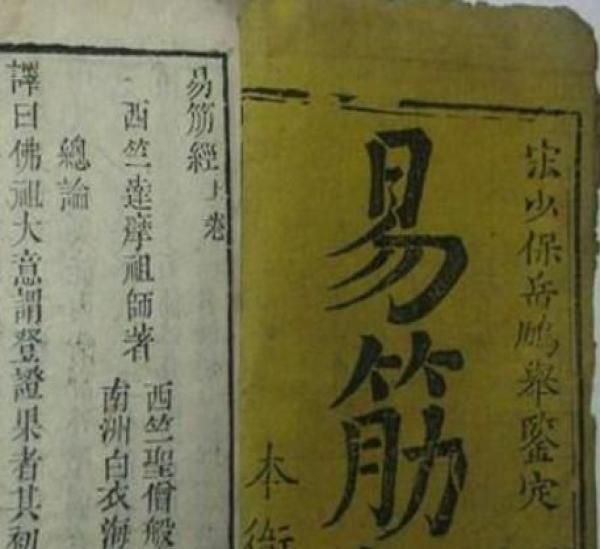 宋少保岳鵬舉鑒定
易筋
本衙
易筋經上卷
西竺達摩祖師著
西竺聖僧般
南洲白衣海
總論
譯曰佛祖大意謂登證果者其初